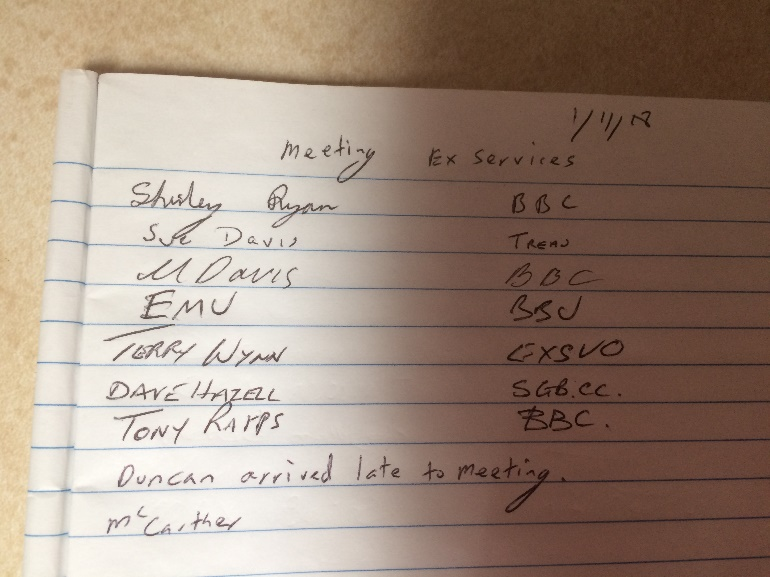 1/11/18
Meeting Ex Services
Shirley Ryan BBC
Sue Davis
M Davis BBC
EMU
TERRY WYNN EXSVO
DAVE HAZELL SGB.CC.
TONY BBC.
Duncan arrived late to meeting.
McCarther